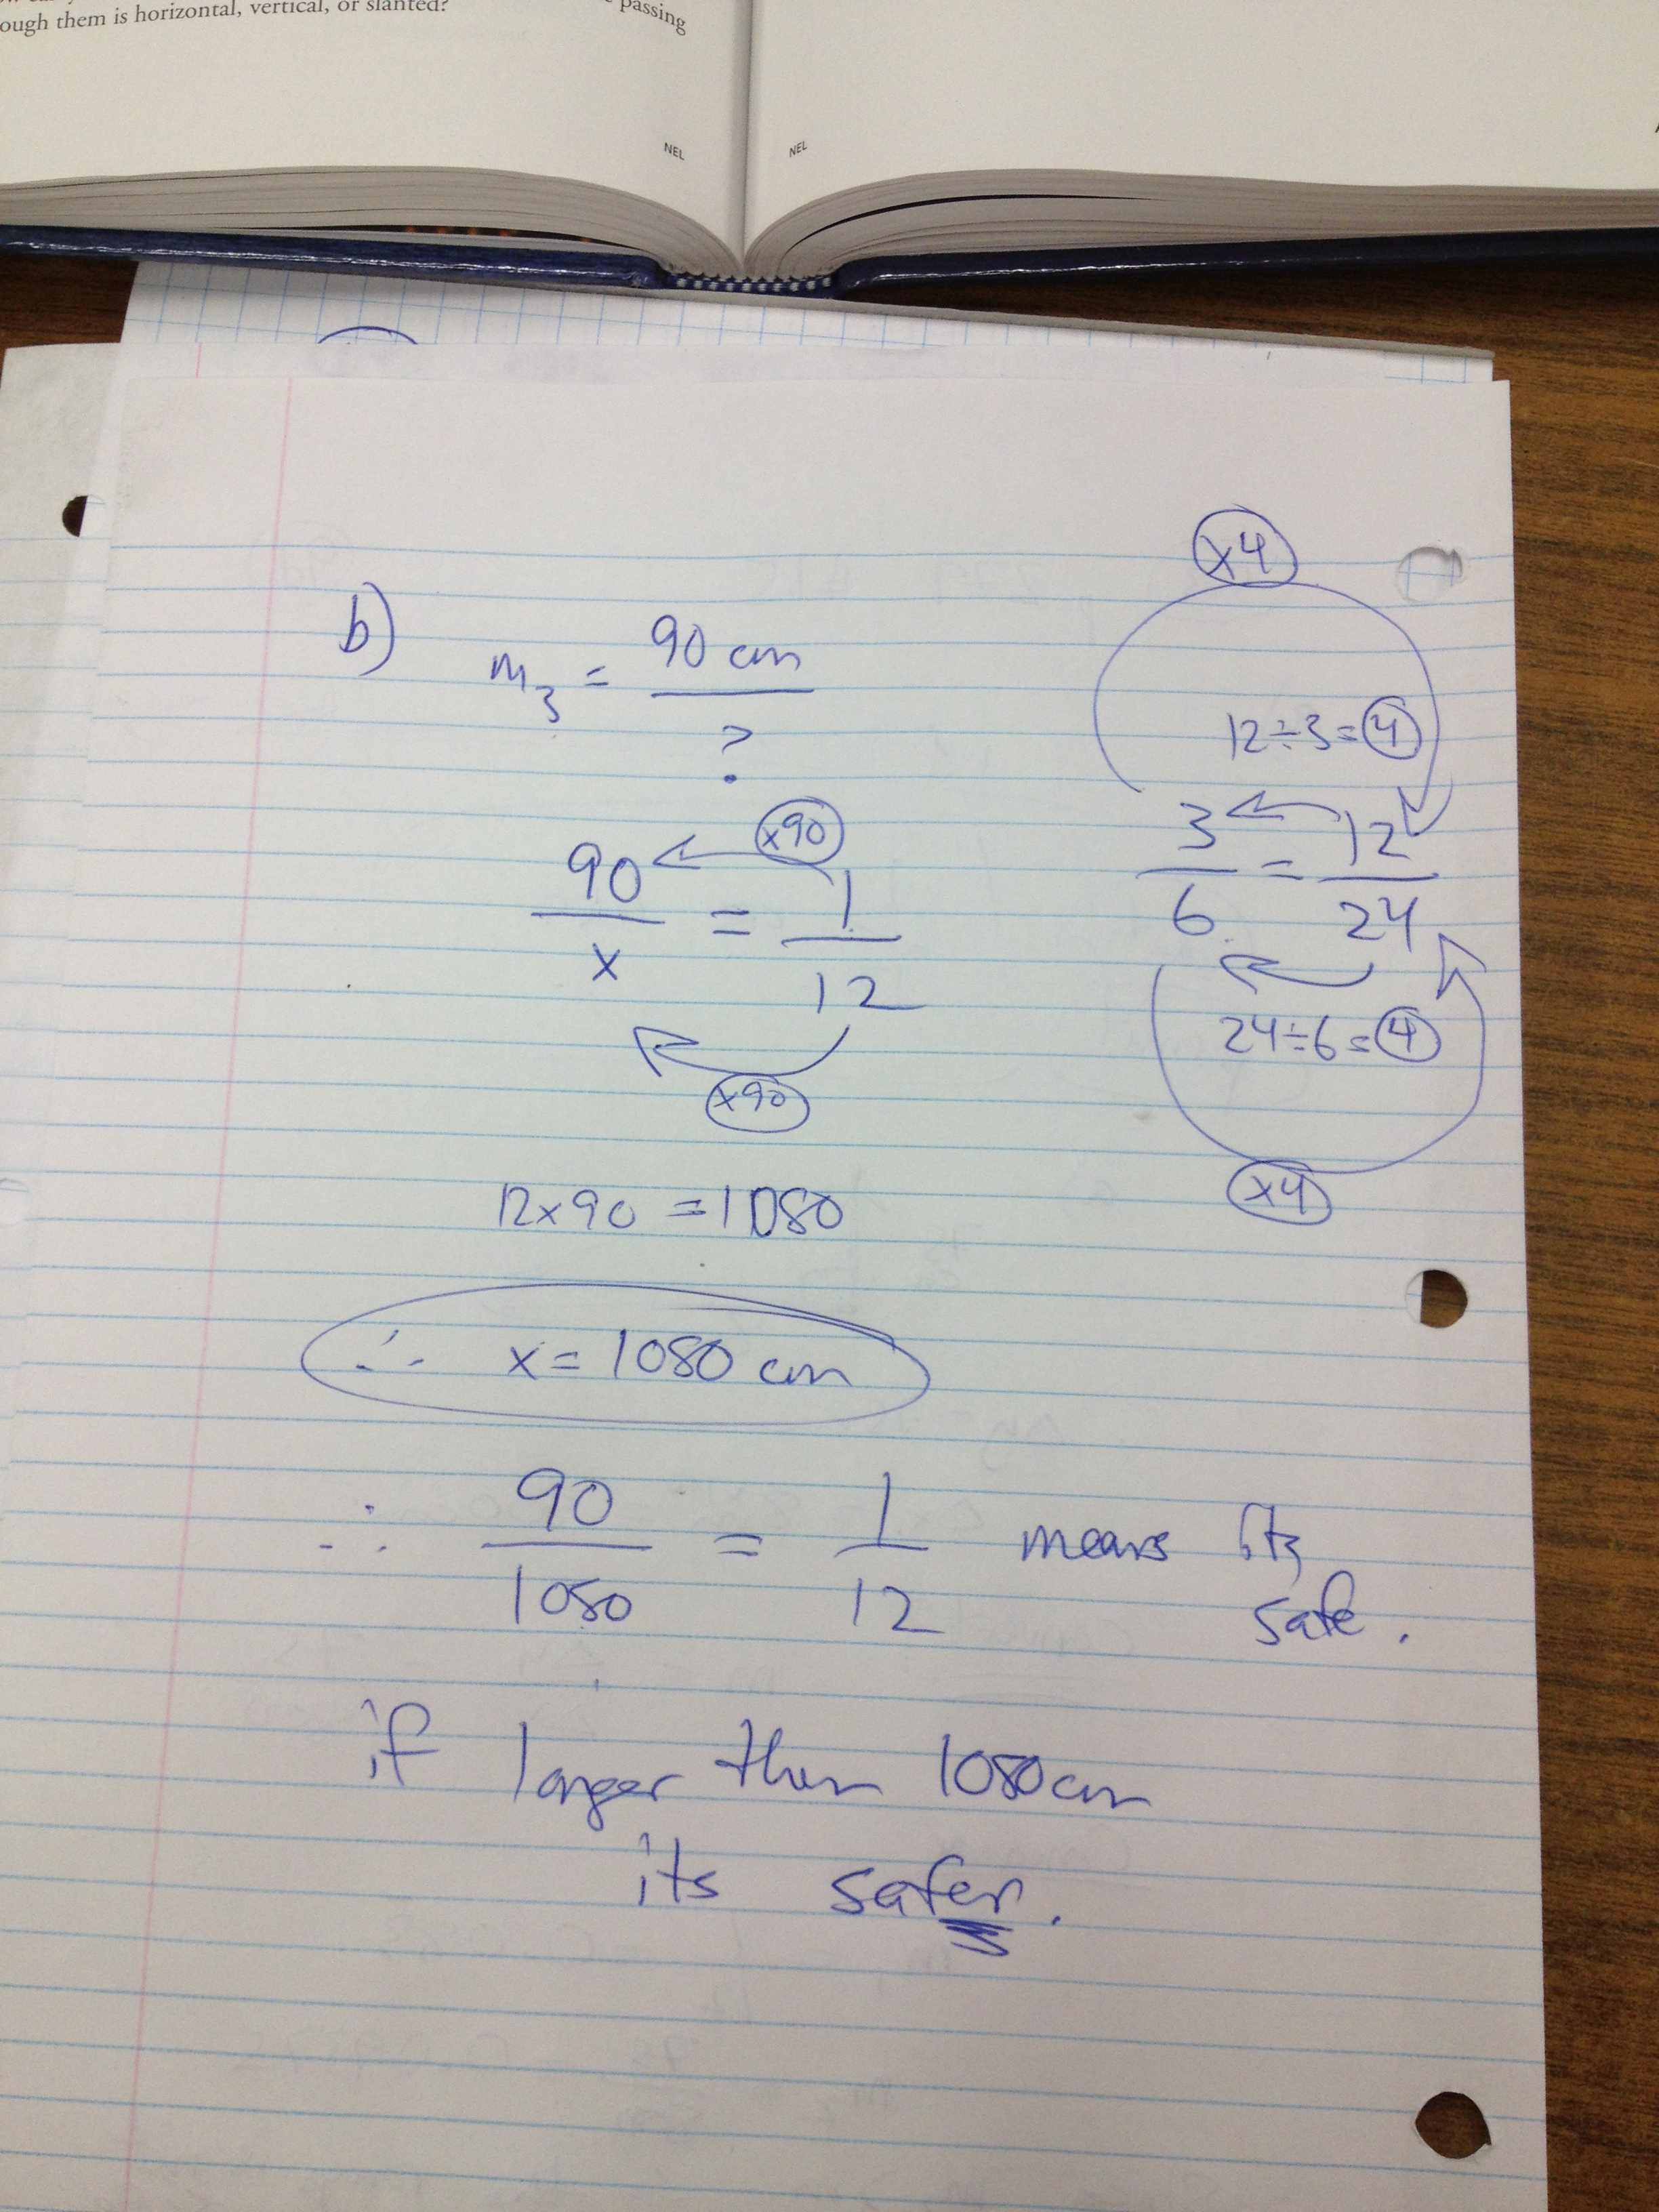 ough them is horizontal, vertical, or slanted?
passing
NEL
NEL
b) m₃ = 90 cm
?
90 / x = 1 / 12
x90
x90
12x90 = 1080
∴ x = 1080 cm
∴ 90 / 1080 = 1 / 12 means its
safe.
if longer then 1080cm
its safer.
x4
12÷3=4
3 / 6 = 12 / 24
24÷6=4
x4